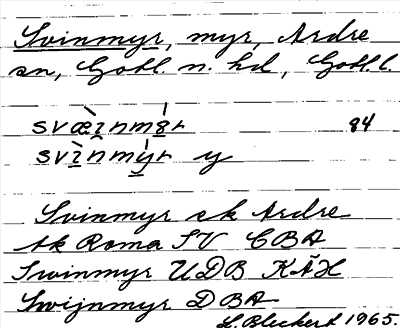 Svinmyr, myr, Ardre
sn, Gotl. n. hd, Gotl. l.
svæ̀ınmýr 84
svı̀nmýr y
Svinmyr sk Ardre
Ak Roma TV CBA
Swinmyr UDB KÄH
Swijnmyr DBA
L. Bleckert 1965.